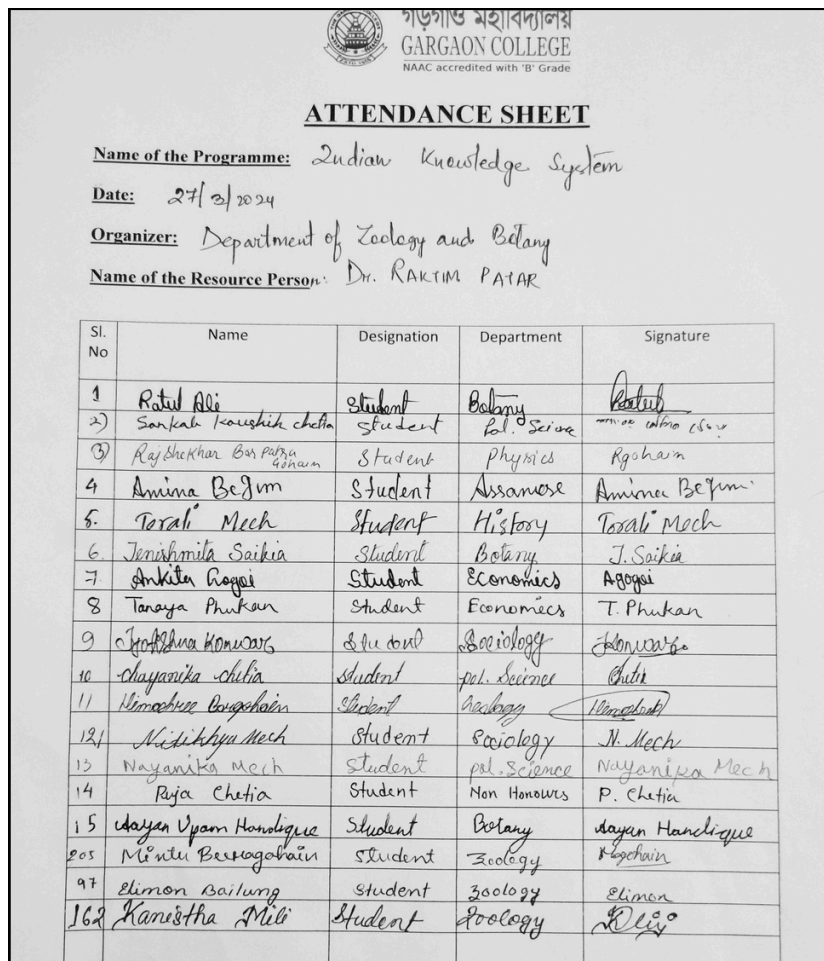 গড়গাঁও মহাবিদ্যালয়
GARGAON COLLEGE
NAAC accredited with 'B' Grade
ATTENDANCE SHEET
Name of the Programme: Indian Knowledge System
Date: 27/3/2024
Organizer: Department of Zoology and Botany
Name of the Resource Person: Dr. RAKTIM PATAR
Sl. No Name Designation Department Signature
1 Ratul Ali Student Botany Ratul
2) Sankab Kaushik chetia Student Pol. Science
3) Rajshekhar Bor patra Gohain Student Physics Rgohain
4 Amina Begum Student Assamese Amina Begum
5. Torali Mech Student History Torali Mech
6. Jenishmita Saikia Student Botany J. Saikia
7. Ankita Gogoi Student Economics Agogoi
8 Tanaya Phukan Student Economics T. Phukan
9 Jyotshna Konwar Student Sociology Jkonwar.
10 Chayanika chetia Student pol. Science Chetia
11 Himashree Borgohain Student Geology
12 Nitikhya Mech Student Sociology N. Mech
13 Nayanika Mech Student pol. Science Nayanika Mech
14 Puja Chetia Student Non Honours P. Chetia
15 Aayan Upam Handique Student Botany Aayan Handique
205 Mintu Student Zoology
97 Elimon Bailung Student Zoology Elimon
162 Kanistha Mili Student Zoology